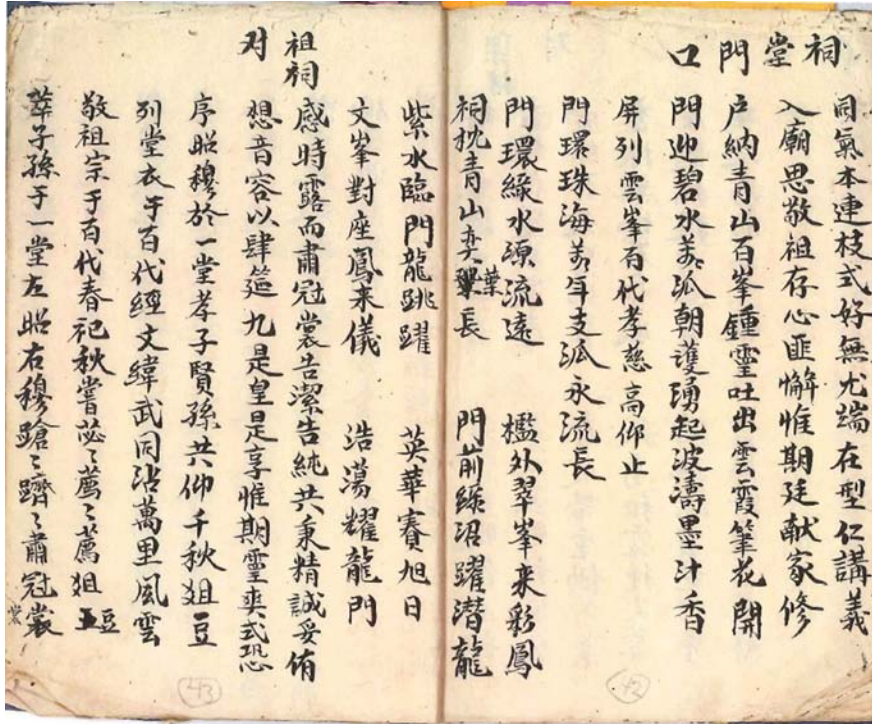 祠堂門口
同氣本連枝式好無尤端在型仁講義
入廟思敬祖存心匪懈惟期廷献家修
户納青山百峯鍾靈吐出雲霞筆花開
門迎碧水萬派朝護湧起波濤墨汁香
屏列雲峯百代孝慈高仰止
門環珠海萬年支派永流長
門環綠水源流遠 檻外翠峯来彩鳳
祠枕青山奕葉長 門前綠沼躍潛龍
42
紫水臨門龍跳躍 英華賽旭日
文峯對座鳳来儀 浩蕩耀龍門
祖祠
对
感時露而肅冠裳告潔告純共秉精誠妥侑
想音容以肆筵九是皇是享惟期靈爽式恐
序昭穆於一堂孝子賢孫共仰千秋俎豆
列堂衣于百代經文緯武同沾萬里風雲
敬祖宗于百代春祀秋嘗苾〻薦〻薦俎豆
萃子孫于一堂左昭右穆蹌〻躋〻肅冠裳
裳
43